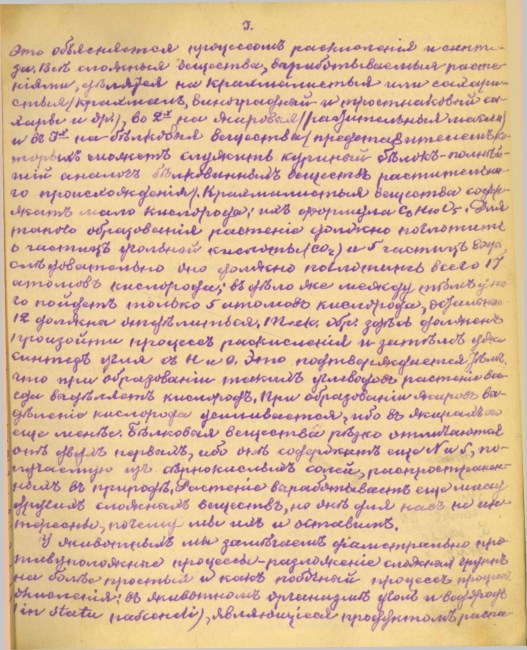 3.
Это объясняется процессомъ раскисленія и синте-
за. Всѣ сложныя вещества, вырабатываемыя расте-
ніями, дѣлятся на крахмалистыя или сахари-
стыя (крахмалъ, виноградный и тростниковый са-
хары и др), во 2х на жировыя (растительныя масла)
и въ 3х на бѣлковыя вещества (представителемъ ко-
торыхъ можетъ служить куриный бѣлокъ - полнѣй-
шій аналогъ бѣлковиннымъ веществъ растительна-
го происхожденія). Крахмалистыя вещества содер-
жатъ мало кислорода; ихъ формула C6H10O5. Для
такого образованія растеніе должно поглотить
6 частицъ угольной кислоты (CO2) и 5 частицъ воды
слѣдовательно оно должно поглотить всего 17
атомовъ кислорода; въ дѣло же между тѣмъ у не-
го пойдетъ только 5 атомовъ кислорода, остальные
12 должны отдѣлиться. Т. ск. обр. здѣсь долженъ
произойти процессъ раскисленія и затѣмъ уже
синтезъ угля съ H и O. Это подтверждается тѣмъ,
что при образованіи такихъ углеводовъ растеніе все-
гда выдѣляетъ кислородъ. При образованіи жировъ вы-
дѣленіе кислорода усиливается, ибо въ жирахъ его
еще менѣе. Бѣлковыя вещества рѣзко отличаются
отъ двухъ первыхъ, ибо онѣ содержатъ еще N и S, по-
лучаемую изъ сѣрнокислыхъ солей, распространен-
ныхъ въ природѣ. Растеніе вырабатываетъ еще массу
другихъ сложныхъ веществъ, но онѣ для насъ не ин-
тересны, почему мы ихъ и оставимъ.
У животныхъ мы замѣчаемъ діаметрально про-
тивуположные процессы - разложеніе сложныхъ группъ
на болѣе простыя и какъ побочный процессъ процессъ
окисленія: въ животномъ организмѣ уголь и водородъ
(in statu nascendi), являющіеся продуктомъ распа-